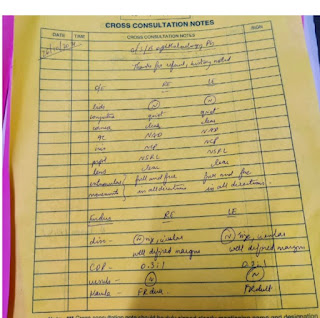 CROSS CONSULTATION NOTES
DATE TIME CROSS CONSULTATION NOTES SIGN
C/S/B ophthalmology PG
Thanks for referral, history noted
O/E RE LE
lids N N
conjunctiva quiet quiet
cornea clear clear
AC NAD NAD
iris NCP NCP
pupil NSRL NSRL
lens clear clear
extraocular full and free full and free
movements in all directions in all directions
Fundus RE LE
disc - N size, circular N size, circular
well defined margins well defined margins
CDR - 0.3:1
vessels - N N
Macula - FR dull FR dull